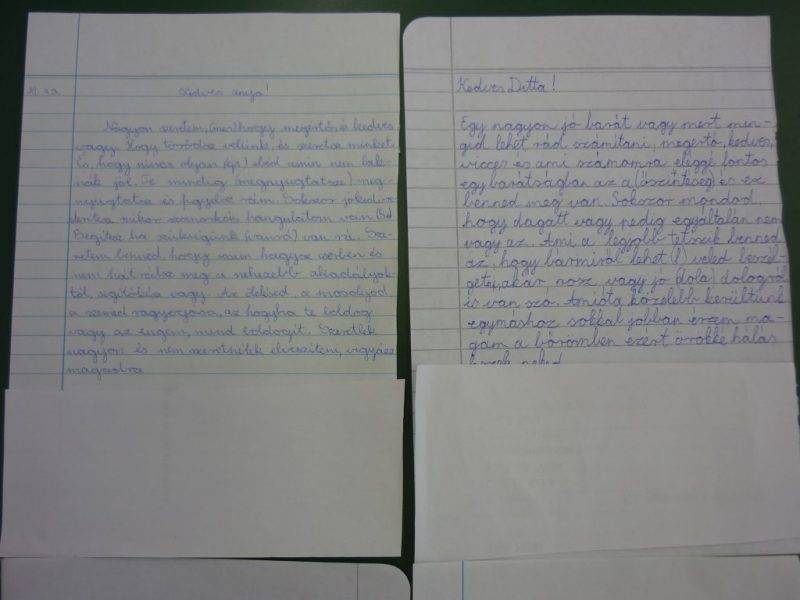 Kedves anya!
Nagyon szeretem, (mer) hogy megértő, és kedves
vagy. Hogy törődsz velünk, és szeretsz minket.
És, hogy nincs olyan ebéd amin nem lak-
nák jól. Te mindig (megnyugtatsz) meg-
nyugtatsz és figyelsz rám. Sokszor jókedvre
derítesz mikor szomorkás hangulatom van.
Segítesz ha szükségünk van rá. Sze-
retem benned, hogy sosem hagysz cserben és
nem hátrálsz meg a nehezebb akadályok-
tól, segítőkész vagy. Az ölelésed, a mosolyod
a szemed ragyogása, az hogyha te boldog
vagy az engem, mind boldogít. Szeretlek
nagyon és nem szeretnélek elveszíteni, vigyázz
magadra
Kedves Ditta!
Egy nagyon jó barát vagy mert min-
gid lehet rád számítani, megértő, kedves,
vicces és ami számomra eléggé fontos
egy barátságban az a (őszinteség) és ez
benned meg van. Sokszor mondod,
hogy dagatt vagy pedig egyáltalán nem
vagy az. Ami a legjobb tetszik benned
az, hogy bármiről lehet (l) veled beszél-
getni, akár rosz vagy jó (dola) dologról
is van szó. Amióta közelebb kerültünk
egymáshoz sokkal jobban érzem ma-
gam a bőrömben ezért örökké hálás
leszek neked